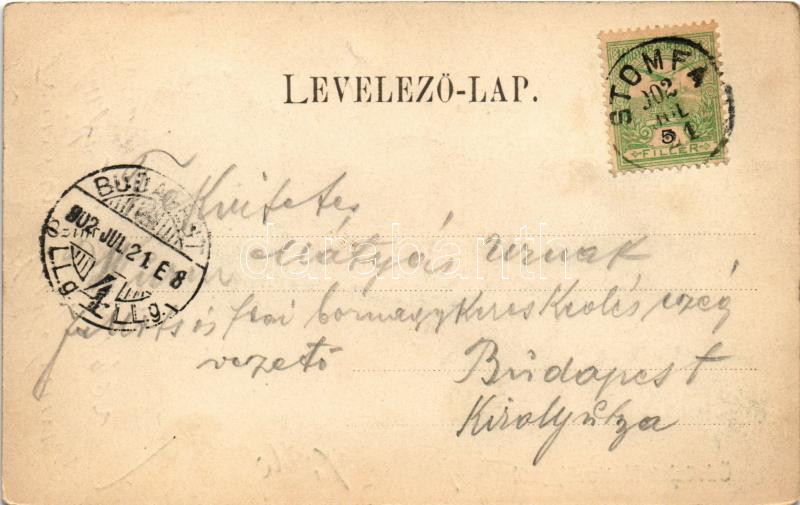 LEVELEZŐ-LAP.
STOMFA
902
JUL
21
5
FILLÉR
BUDAPEST
902 JUL. 21. E 8
Mátyás Urnak
és fiai bornagykereskedés czég
vezető
Budapest
Királyutza
darabanth